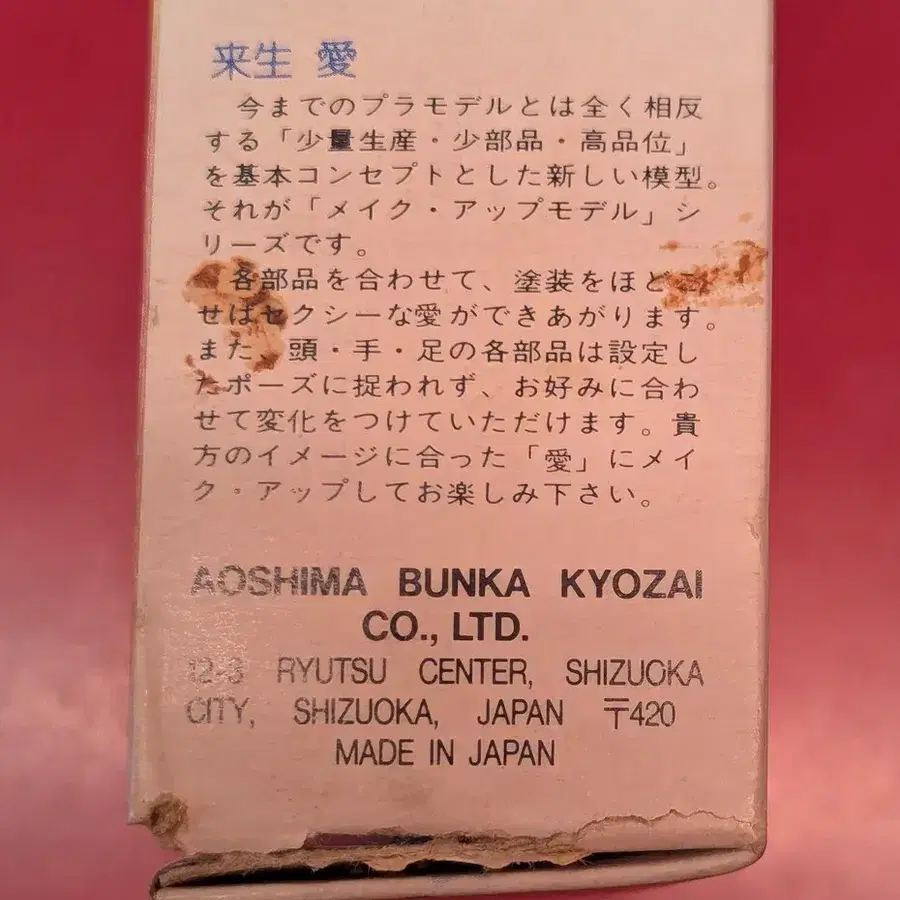 来生 愛
今までのプラモデルとは全く相反
する「少量生産・少部品・高品位」
を基本コンセプトとした新しい模型。
それが「メイク・アップモデル」シ
リーズです。
各部品を合わせて、塗装をほどこ
せばセクシーな愛ができあがります。
また、頭・手・足の各部品は設定し
たポーズに捉われず、お好みに合わ
せて変化をつけていただけます。貴
方のイメージに合った「愛」にメイ
ク・アップしてお楽しみ下さい。
AOSHIMA BUNKA KYOZAI
CO., LTD.
12-3 RYUTSU CENTER, SHIZUOKA
CITY, SHIZUOKA, JAPAN 〒420
MADE IN JAPAN